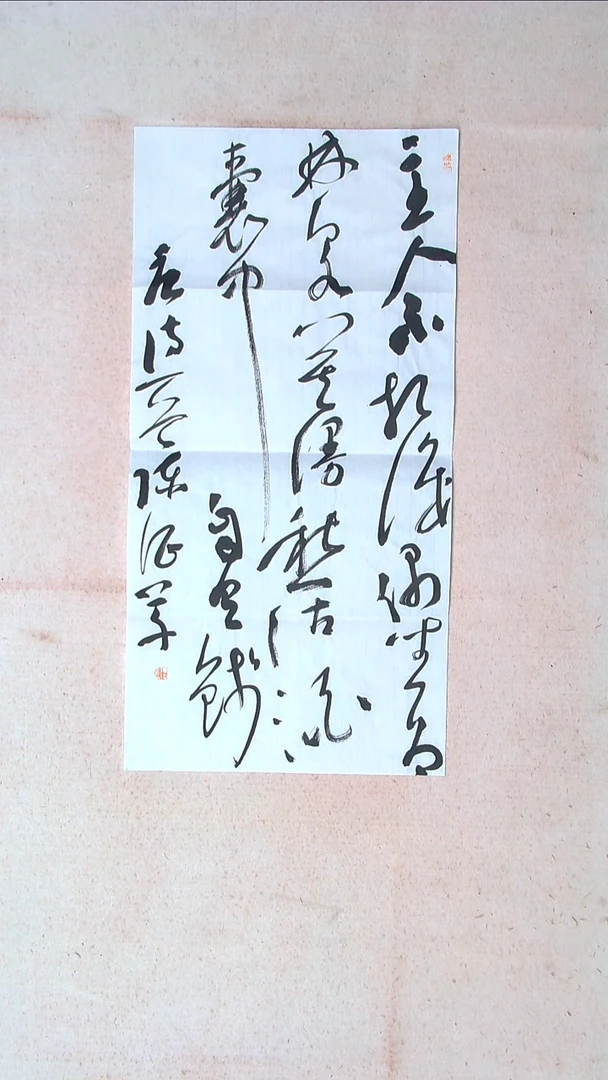 主人不相识偶坐为
林泉莫谩愁沽酒
囊中自有钱
唐诗一首陈